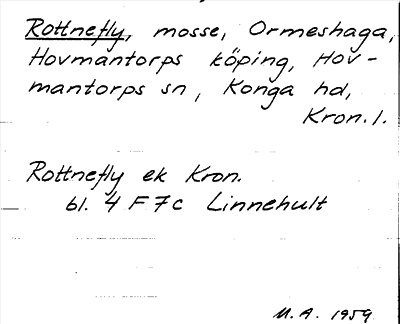 Rottnefly, mosse, Ormeshaga,
Hovmantorps köping, Hov-
mantorps sn, Konga hd,
Kron. l.
Rottnefly ek Kron.
bl. 4 F 7c Linnehult
M.A. 1959